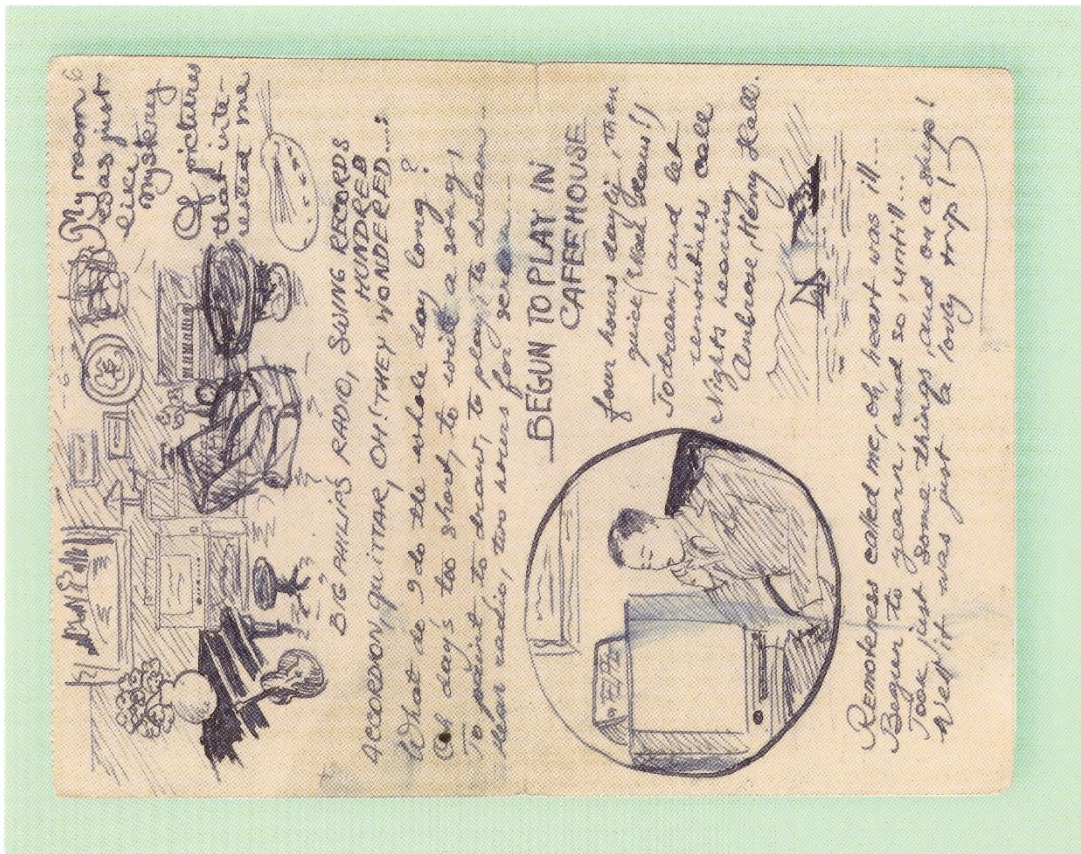 My room 6
was just
like
mystery
Of pictures
that inte-
rested me
BIG PHILIPS RADIO, SWING RECORDS
HUNDRED
ACCORDON, GUITTAR, OH! THEY WONDERED...:
What do I do the whole day long?
Oh day's too short, to write a song!
To paint to draw, to play, to dream...
Hear radio, two hours for
BEGUN TO PLAY IN
CAFEEHOUSE
four hours dayly, then
quick
To dream, and let
remoutnes call
Nights hearing
Ambrose, Henry Hall.
Remoteness called me, oh, heart was ill...
Begun to yearn, and so, untill...
Took just some things, and on a ship!
Well it was just a losty trip!